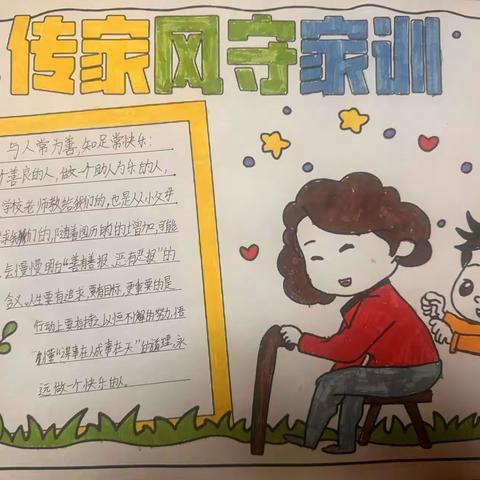 传家风守家训
与人常为善,知足常快乐:
善良的人,做一个助人为乐的人,
学校老师教给我们的,也是从小父母
我们的,随着阅历的的增加,可能
会慢慢明白“善有善报、恶有恶报”的
含义。人生要有追求,要有目标,更重要的是
行动上要有持之以恒不懈的努力,
懂“谋事在人成事在天”的道理,永
远做一个快乐的人。